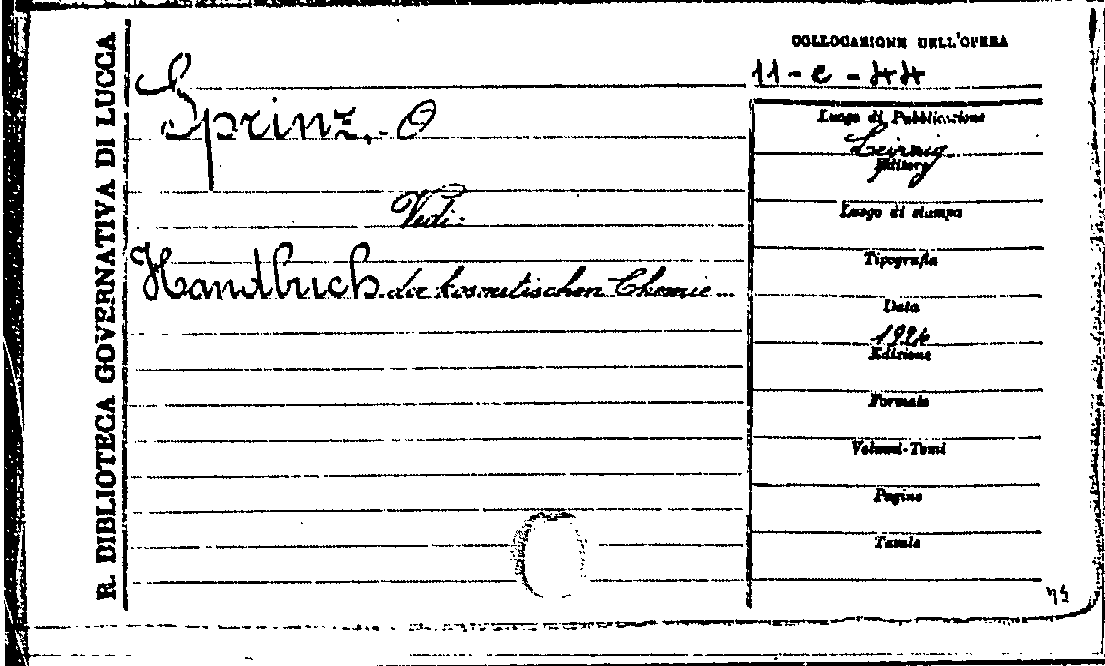 R. BIBLIOTECA GOVERNATIVA DI LUCCA
Sprinz, O
Vedi:
Handbuch der kosmetischen Chemie...
COLLOCAZIONE DELL'OPERA
11 - e - 44
Luogo di Pubblicazione
Leipzig
Editore
Luogo di stampa
Tipografia
Data
1920
Edizione
Formato
Volumi-Tomi
Pagine
Tavole